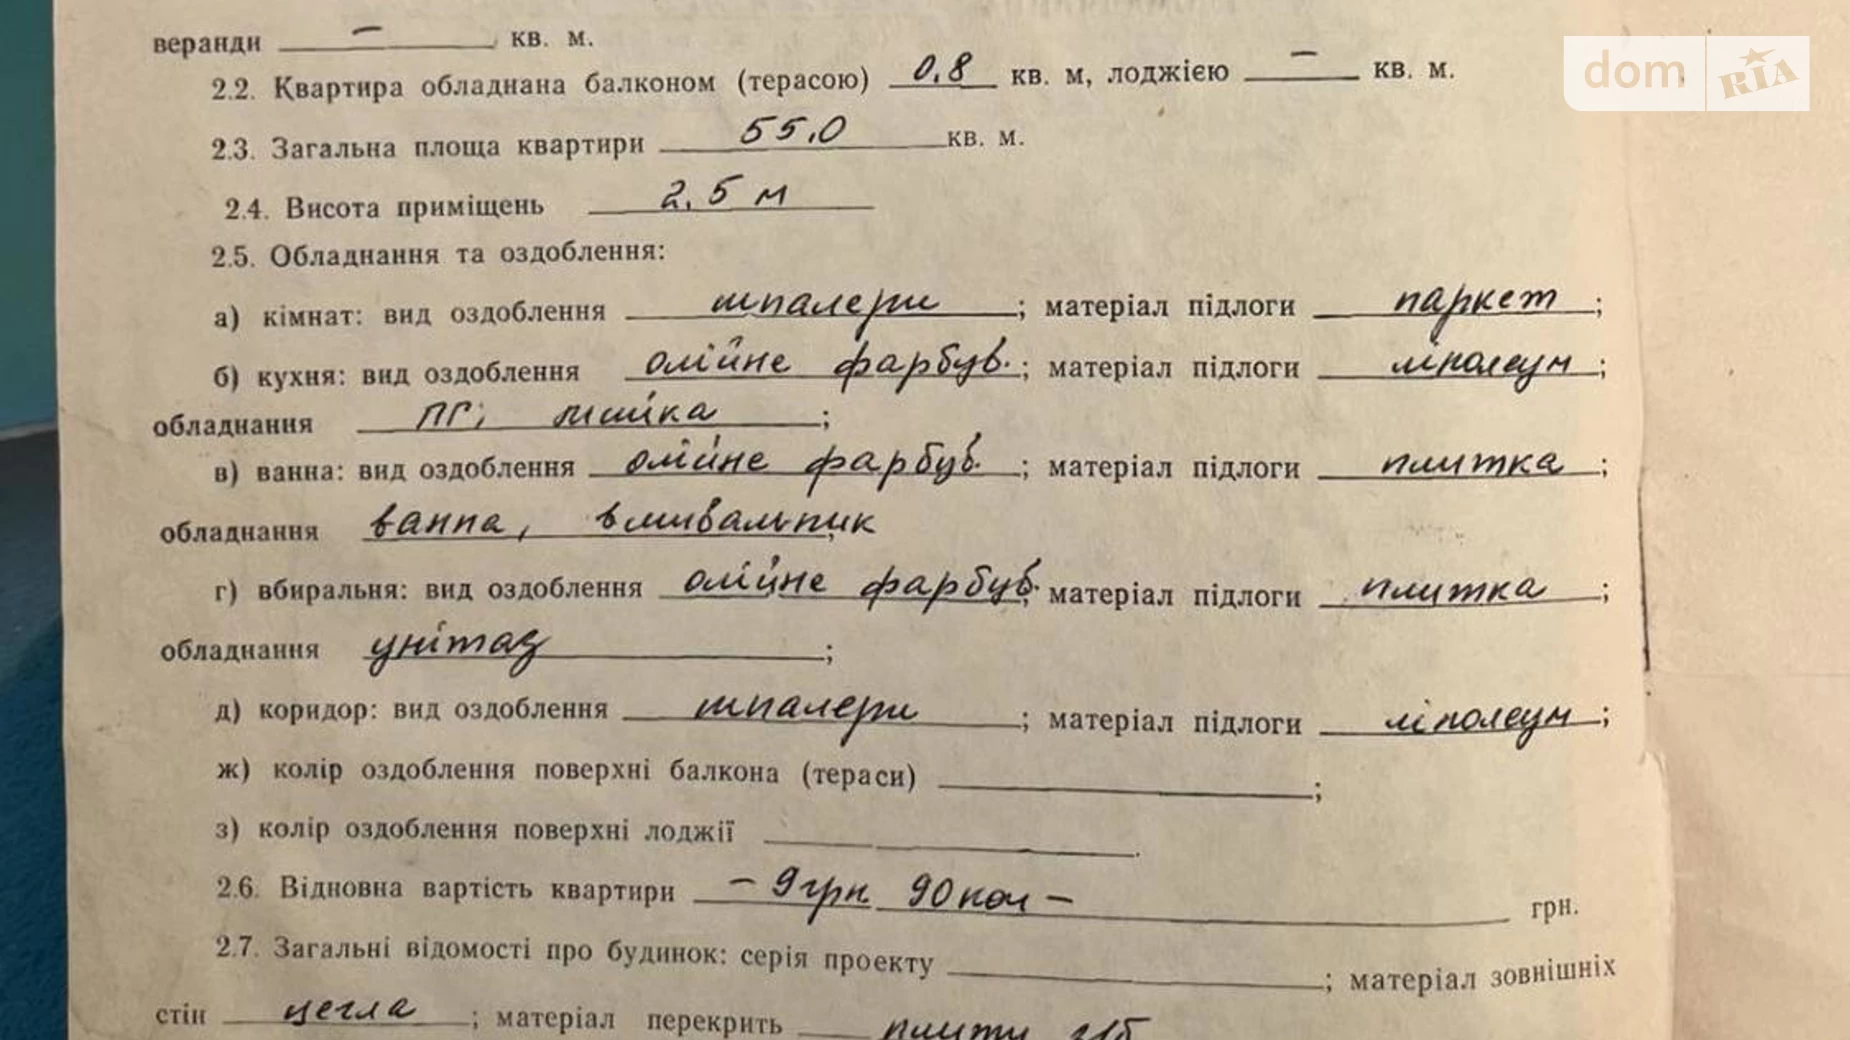 веранди — кв. м.
dom RIA
2.2. Квартира обладнана балконом (терасою) 0,8 кв. м, лоджією — кв. м.
2.3. Загальна площа квартири 55,0 кв. м.
2.4. Висота приміщень 2,5 м
2.5. Обладнання та оздоблення:
а) кімнат: вид оздоблення шпалери; матеріал підлоги паркет;
б) кухня: вид оздоблення олійне фарбув.; матеріал підлоги лінолеум;
обладнання ПГ; мийка;
в) ванна: вид оздоблення олійне фарбув.; матеріал підлоги плитка;
обладнання ванна, вмивальник;
г) вбиральня: вид оздоблення олійне фарбув.; матеріал підлоги плитка;
обладнання унітаз;
д) коридор: вид оздоблення шпалери; матеріал підлоги лінолеум;
ж) колір оздоблення поверхні балкона (тераси) ;
з) колір оздоблення поверхні лоджії .
2.6. Відновна вартість квартири – 9 грн 90 коп – грн.
2.7. Загальні відомості про будинок: серія проекту ; матеріал зовнішніх
стін цегла; матеріал перекрить плити з/б